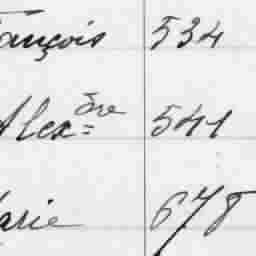 ançois 534
Alex=dre 541
arie 678